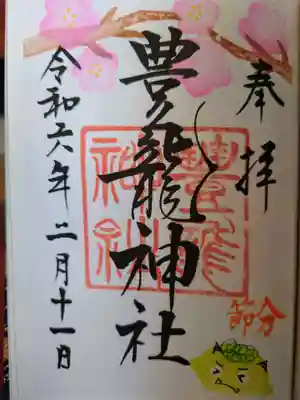 奉拝
豊龍神社
豊龍神社
令和六年二月十一日
節分